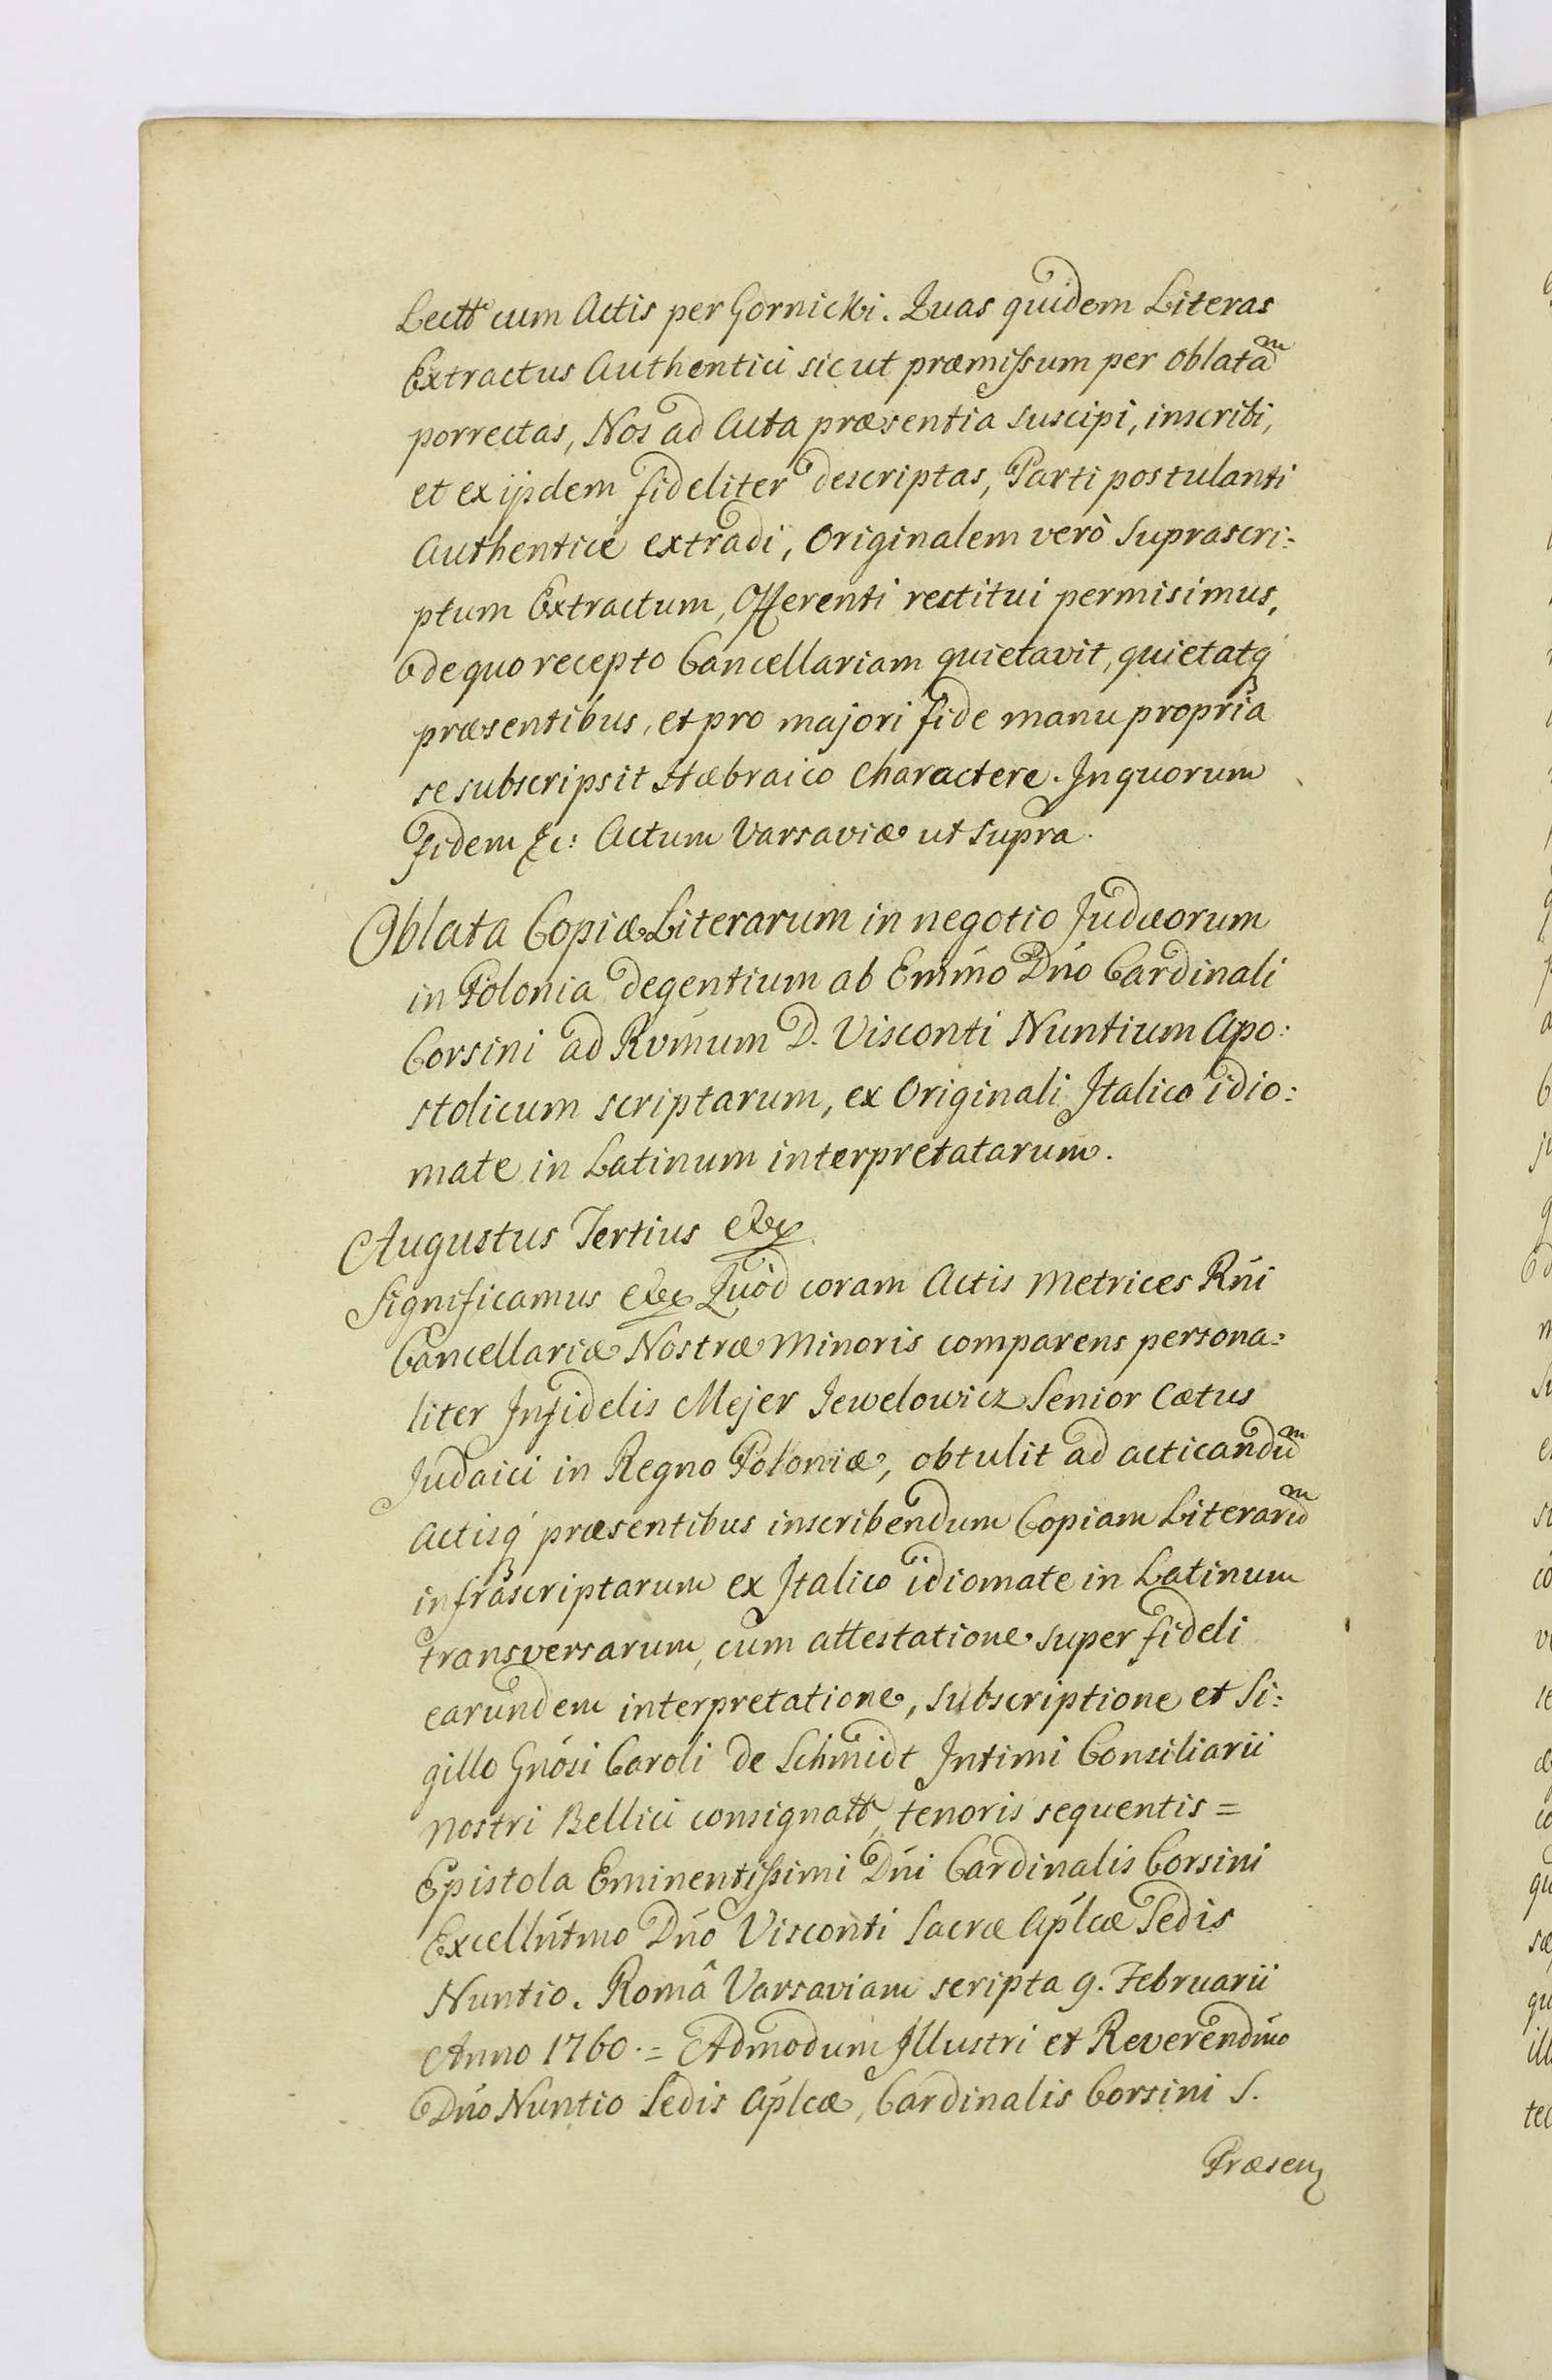 Lectt cum Actis per Gornicki. Quas quidem Literas
Extractus Authentici sicut præmissum per Oblatam
porrectas, Nos ad Acta præsentia suscipi, inscribi,
et ex ijsdem fideliter descriptas, Parti postulanti
Authenticè extradi, Originalem verò Suprascri:
ptum Extractum, Offerenti restitui permisimus,
de quo recepto Cancellariam quietavit, quietatq́
præsentibus, et pro majori fide manu propria
se subscripsit Hæbraico Charactere. In quorum
fidem &c: Actum Varsaviæ ut supra.
Oblata Copiæ Literarum in negotio Judæorum
in Polonia degentium ab Emiń̃o Dńo Cardinali
Corsini ad Rvmum D. Visconti Nuntium Apo:
stolicum scriptarum, ex Originali Italico idio:
mate in Latinum interpretatarum.
Augustus Tertius &c
Significamus &c Quòd coram Actis Metrices Rńi
Cancellariæ Nostræ Minoris comparens persona:
liter Infidelis Mejer Jewelowicz Senior Cætus
Judaici in Regno Poloniæ, obtulit ad acticandum
Actisq́ præsentibus inscribendum Copiam Literarum
infrascriptarum ex Italico idiomate in Latinum
transversarum, cum attestatione super fideli
earundem interpretatione, subscriptione et Si:
gillo Gńosi Caroli de Schmidt Intimi Consiliarii
Nostri Bellici consignatt, tenoris sequentis =
Epistola Eminentissimi Dńi Cardinalis Corsini
Excellńtmo Dńo Visconti Sacræ Aplcæ Sedis
Nuntio. Româ Varsaviam scripta 9. Februarii
Anno 1760. = Admodum Illustri et Reverendmo
Dńo Nuntio Sedis Aplcæ, Cardinalis Corsini S.
Præsen